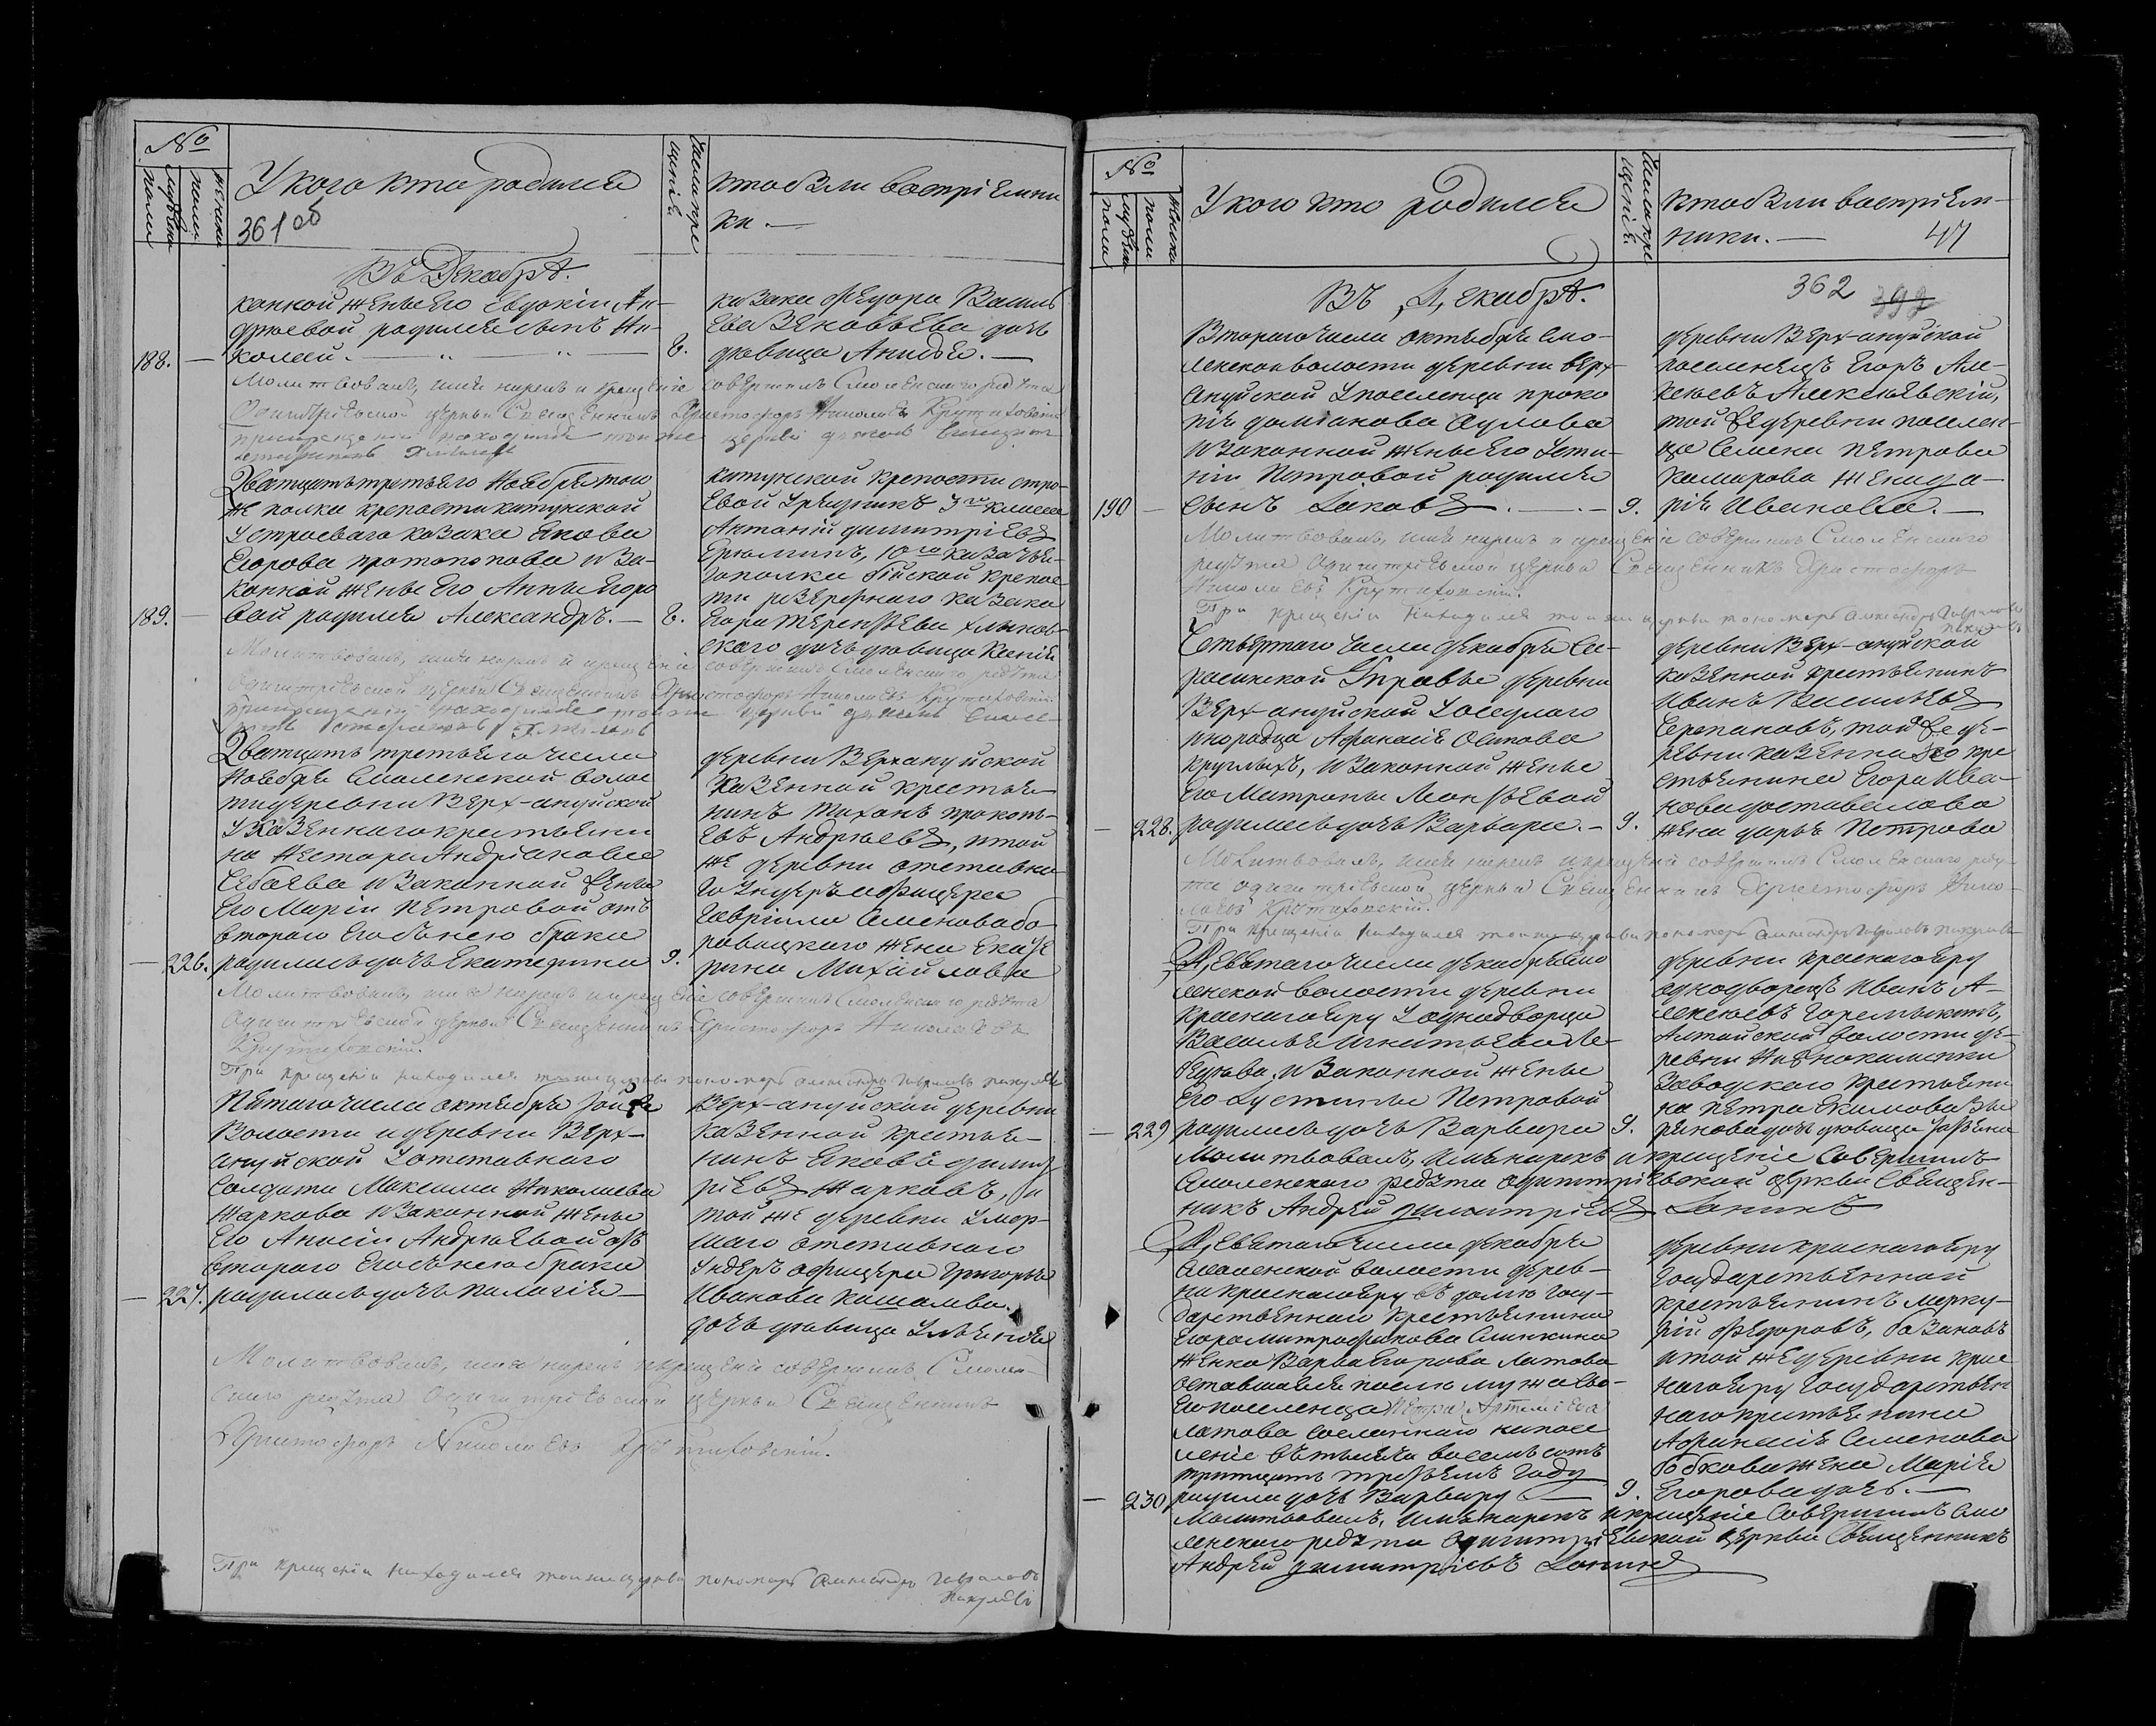 №
мужеска пола
женска пола
У кого кто родился
361 об
Числа крещенія
кто были воспріемни
ки. —
Въ Декабрѣ.
конной женѣ его Евдокіи Ан-
дреевой родился сынъ Ни-
188. — колай. — „ — „ — 6.
Козака Федора Василь
ева Зеновьева дочь
девица
Молитвовалъ, имя нарекъ и крещеніе совершилъ Смоленскаго редута
Одигитріевской церкви Священникъ Христофоръ Николаевъ Крутиховскій
при крещеніи находился тойже церкви
Дватцать третьяго Ноября того
же полка крепости катунской
У строеваго козака Якова
Егорова протопопова и за-
конной жены его Анны Егоро
189. — вой родился Александръ. — 6.
катунской крепости стро-
евой Урядникъ 3го класса
Антоній Димитріевъ
10го казачье-
го полка бійской крепос-
ти резервнаго казака
Егора Терентьева
скаго дочь девица Ксенія
Молитвовалъ, имя нарекъ и крещеніе совершилъ Смоленскаго редута
Одигитріевской церкви Священникъ Христофоръ Николаевъ Крутиховскій.
при крещеніи находился тойже церкви
Дватцать третьяго числа
Ноября Смоленской волос
ти деревни Верх-ануйской
У казеннаго крестьяни
на Нестора Андріанова
Себаева и законной жены
Его Маріи Петровой отъ
втораго его съ нею брака
— 226. родилась дочь Екатерина 9.
деревни Верхануйской
Казенной крестья-
нинъ Тиханъ прокопь-
евъ Андреевъ, и той
же деревни отставна-
го Ундеръ афицера
Гаврила Семенова бо-
ровицкаго жена Екате
рина Михайловна
Молитвовалъ, имя нарекъ и крещеніе совершилъ Смоленскаго редута
Одигитріевской церкви Священникъ Христофоръ Николаевъ
Крутиховскій.
При крещеніи находился тойже церкви пономарь Александръ Гавриловъ Никулинъ
Пятаго числа октября той же
Волости и деревни Верх-
ануйской У отставнаго
Солдата Максима Николаева
Жаркова и законной жены
Его Анисіи Андреевой отъ
втораго его съ нею брака
— 227. родилась дочь Палагія —
Верх-ануйской деревни
Казенной крестья-
нинъ Яковъ Димит
ріевъ Жарковъ, и
той же деревни Умер-
шаго отставнаго
Ундеръ афицера Григорья
Иванова
дочь девица Ульянея
Молитвовалъ, имя нарекъ и крещеніе совершилъ Смолен-
скаго редута Одигитріевской церкви Священникъ
Христофоръ Николаевъ Крутиховскій.
При крещеніи находился тойже церкви пономарь Александръ Гавриловъ
Никулинъ
№
мужеска пола
женска пола
У кого кто родился
Числа крещенія.
кто были воспріем-
ники. — 47
Въ Декабрѣ.
362 399
Втораго числа октября Смо-
ленской волости деревни верх-
ануйской У поселенца проко
пія
и законной жены его Усти-
ніи Петровой родился
190 — сынъ Іаковъ. — 9.
деревни Верх-ануйской
поселенецъ Егоръ Але-
ксеевъ Алексеевскій,
той же деревни поселен-
ца Семена Петрова
Комарова жена да-
рія Иванова. —
Молитвовалъ, имя нарекъ и крещеніе совершилъ Смоленскаго
редута Одигитріевской церкви Священникъ Христофоръ
Николаевъ Крутиховскій.
При крещеніи находился тойже церкви пономарь Александръ Гавриловъ
Никулинъ
Четвертаго числа декабря Са-
расинской Управы деревни
Верх-ануйской У оседлаго
инородца Афанасія Осипова
Круглыхъ, и законной жены
Его Матроны Леонтьевой
— 228. родилась дочь Варвара. — 9.
деревни Верх-ануйской
казенной крестьянинъ
Иванъ Васильевъ
Черепановъ, той же де-
ревни казеннаго кре
стьянина Егора Ива-
нова доставалова
жена дарья Петрова
Молитвовалъ, имя нарекъ и крещеніе совершилъ Смоленскаго реду-
та одигитріевской церкви Священникъ Христофоръ Нико-
лаевъ Крутиховскій.
При крещеніи находился тойже церкви пономарь Александръ Гавриловъ Никулинъ
Девятаго числа декабря Смо
ленской волости деревни
Краснаго яру У однодворца
Василья Игнатьева Ле-
бедева, и законной жены
Его Устиньи Петровой
— 229 родилась дочь Варвара 9.
деревни краснаго яру
однодворецъ Иванъ А-
лексеевъ Горемыкинъ,
Алтайской волости де-
ревни Нижнокаменки
Заводскаго крестьяни
на Петра Екимова Зы
рянова дочь девица Татьяна
Молитвовалъ, имя нарекъ и крещеніе Совершилъ
Смоленскаго редута одигитріевской церкви Священ-
никъ Андрей Димитріевъ Лапинъ
Девятаго числа декабря
Смоленской волости дерев-
ни краснаго яру въ доме госу-
дарственнаго крестьянина
Егора Митрофанова Синкина
женка Варва Егорова Латова
оставшаяся после мужа сво-
его поселенца Петра Артемьева
Латова сосланнаго на посе
леніе въ тысяча восемь сотъ
тритцать третьемъ году
— 230 родила дочь Варвару — 9.
деревни краснаго яру
Государственной
крестьянинъ Мерку-
рій Федоровъ, Казаковъ
и той же деревни крас
наго яру государствен
наго крестьянина
Афанасія Семенова
Бобкова жена Марія
Егорова дочь. —
Молитвовалъ, имя нарекъ и крещеніе Совершилъ Смо
ленскаго редута Одигитріевской церкви Священникъ
Андрей Димитріевъ Лапинъ